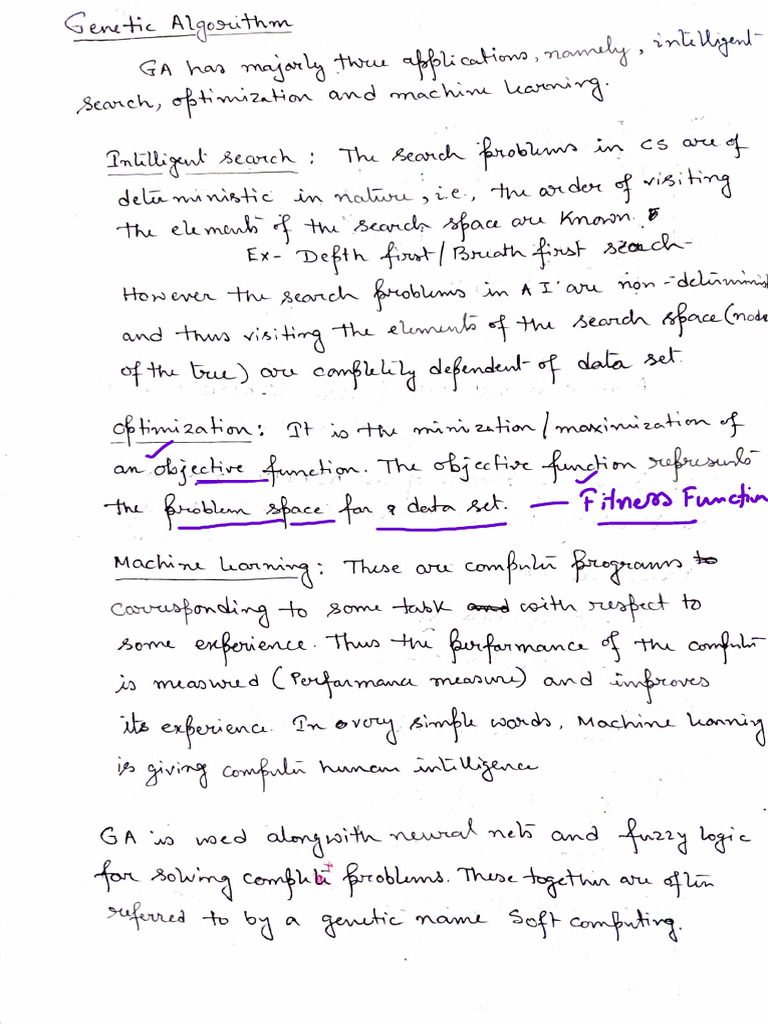 Genetic Algorithm
GA has majorly three applications, namely, intelligent
search, optimization and machine learning.
Intelligent search : The search problems in CS are of
deterministic in nature, i.e., the order of visiting
the elements of the search space are known.
Ex- Depth first/Breath first search
However the search problems in AI are non-determinis
and thus visiting the elements of the search space (node
of the tree) are completely dependent of data set.
Optimization : It is the minization/maximization of
an objective function. The objective function represents
the problem space for a data set. — Fitness Function
Machine learning : These are computer programs to
corresponding to some task and with respect to
some experience. Thus the performance of the computer
is measured (Performance measure) and improves
its experience. In very simple words, Machine learning
is giving computer human intelligence
GA is used alongwith neural nets and fuzzy logic
for solving problems. These together are often
referred to by a genetic name Soft computing.